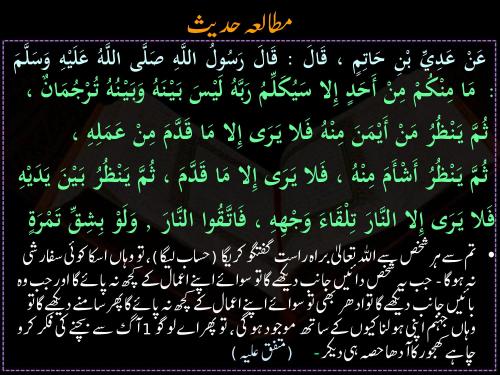 مطالعہ حدیث
عَنْ عَدِيِّ بْنِ حَاتِمٍ ، قَالَ : قَالَ رَسُولُ اللَّهِ صَلَّى اللَّهُ عَلَيْهِ وَسَلَّمَ
: مَا مِنْكُمْ مِنْ أَحَدٍ إِلا سَيُكَلِّمُ رَبَّهُ لَيْسَ بَيْنَهُ وَبَيْنَهُ تُرْجُمَانٌ ،
ثُمَّ يَنْظُرُ مَنْ أَيْمَنَ مِنْهُ فَلا يَرَى إِلا مَا قَدَّمَ مِنْ عَمَلِهِ ،
ثُمَّ يَنْظُرُ أَشْأَمَ مِنْهُ ، فَلا يَرَى إِلا مَا قَدَّمَ ، ثُمَّ يَنْظُرُ بَيْنَ يَدَيْهِ
فَلا يَرَى إِلا النَّارَ تِلْقَاءَ وَجْهِهِ ، فَاتَّقُوا النَّارَ , وَلَوْ بِشِقِّ تَمْرَةٍ
• تم سے ہر شخص سے اللہ تعالیٰ براہ راست گفتگو کریگا (حساب لیگا)، تو وہاں اسکا کوئی سفارشی
نہ ہوگا - جب یہ شخص دائیں جانب دیکھے گا تو سوائے اپنے اعمال کے کچھ نہ پائے گا اور جب وہ
بائیں جانب دیکھے گا تو ادھر بھی تو سوائے اپنے اعمال کے کچھ نہ پائے گا پھر سامنے دیکھے گا تو
وہاں جہنم اپنی ہولناکیوں کے ساتھ موجود ہوگی، تو پھر اے لوگو 1 آگ سے بچنے کی فکر کرو
چاہے کھجور کا آدھا حصہ ہی دیکر - (متفق علیہ)